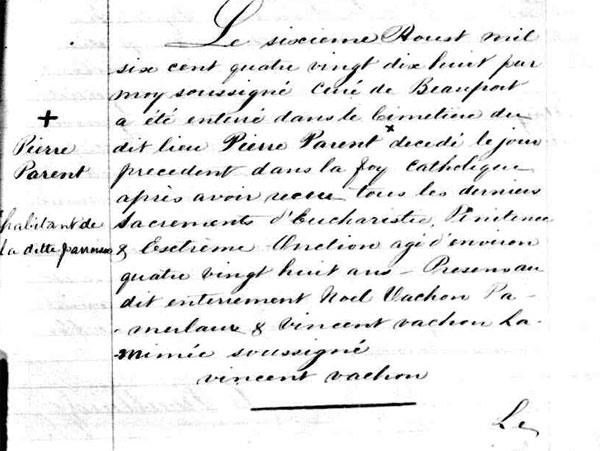 Le sixieme Aoust mil
six cent quatre vingt dix huit par
moy soussigné Curé de Beauport
+
a été enterré dans le Cimetiere du
Pierre
Parent
dit lieu Pierre Parent x decedé le jour
precedent dans la foy Catholique
après avoir receu tous les derniers
habitant de
la ditte paroisse
Sacrements d'Eucharistie, Penitence
& Exctrême Onction agé d'environ
quatre vingt huit ans – Presens au
dit enterrement Noel Vachon Pa-
-merlaux & Vincent vachon La-
-mimée soussigné
vincent vachon
Le